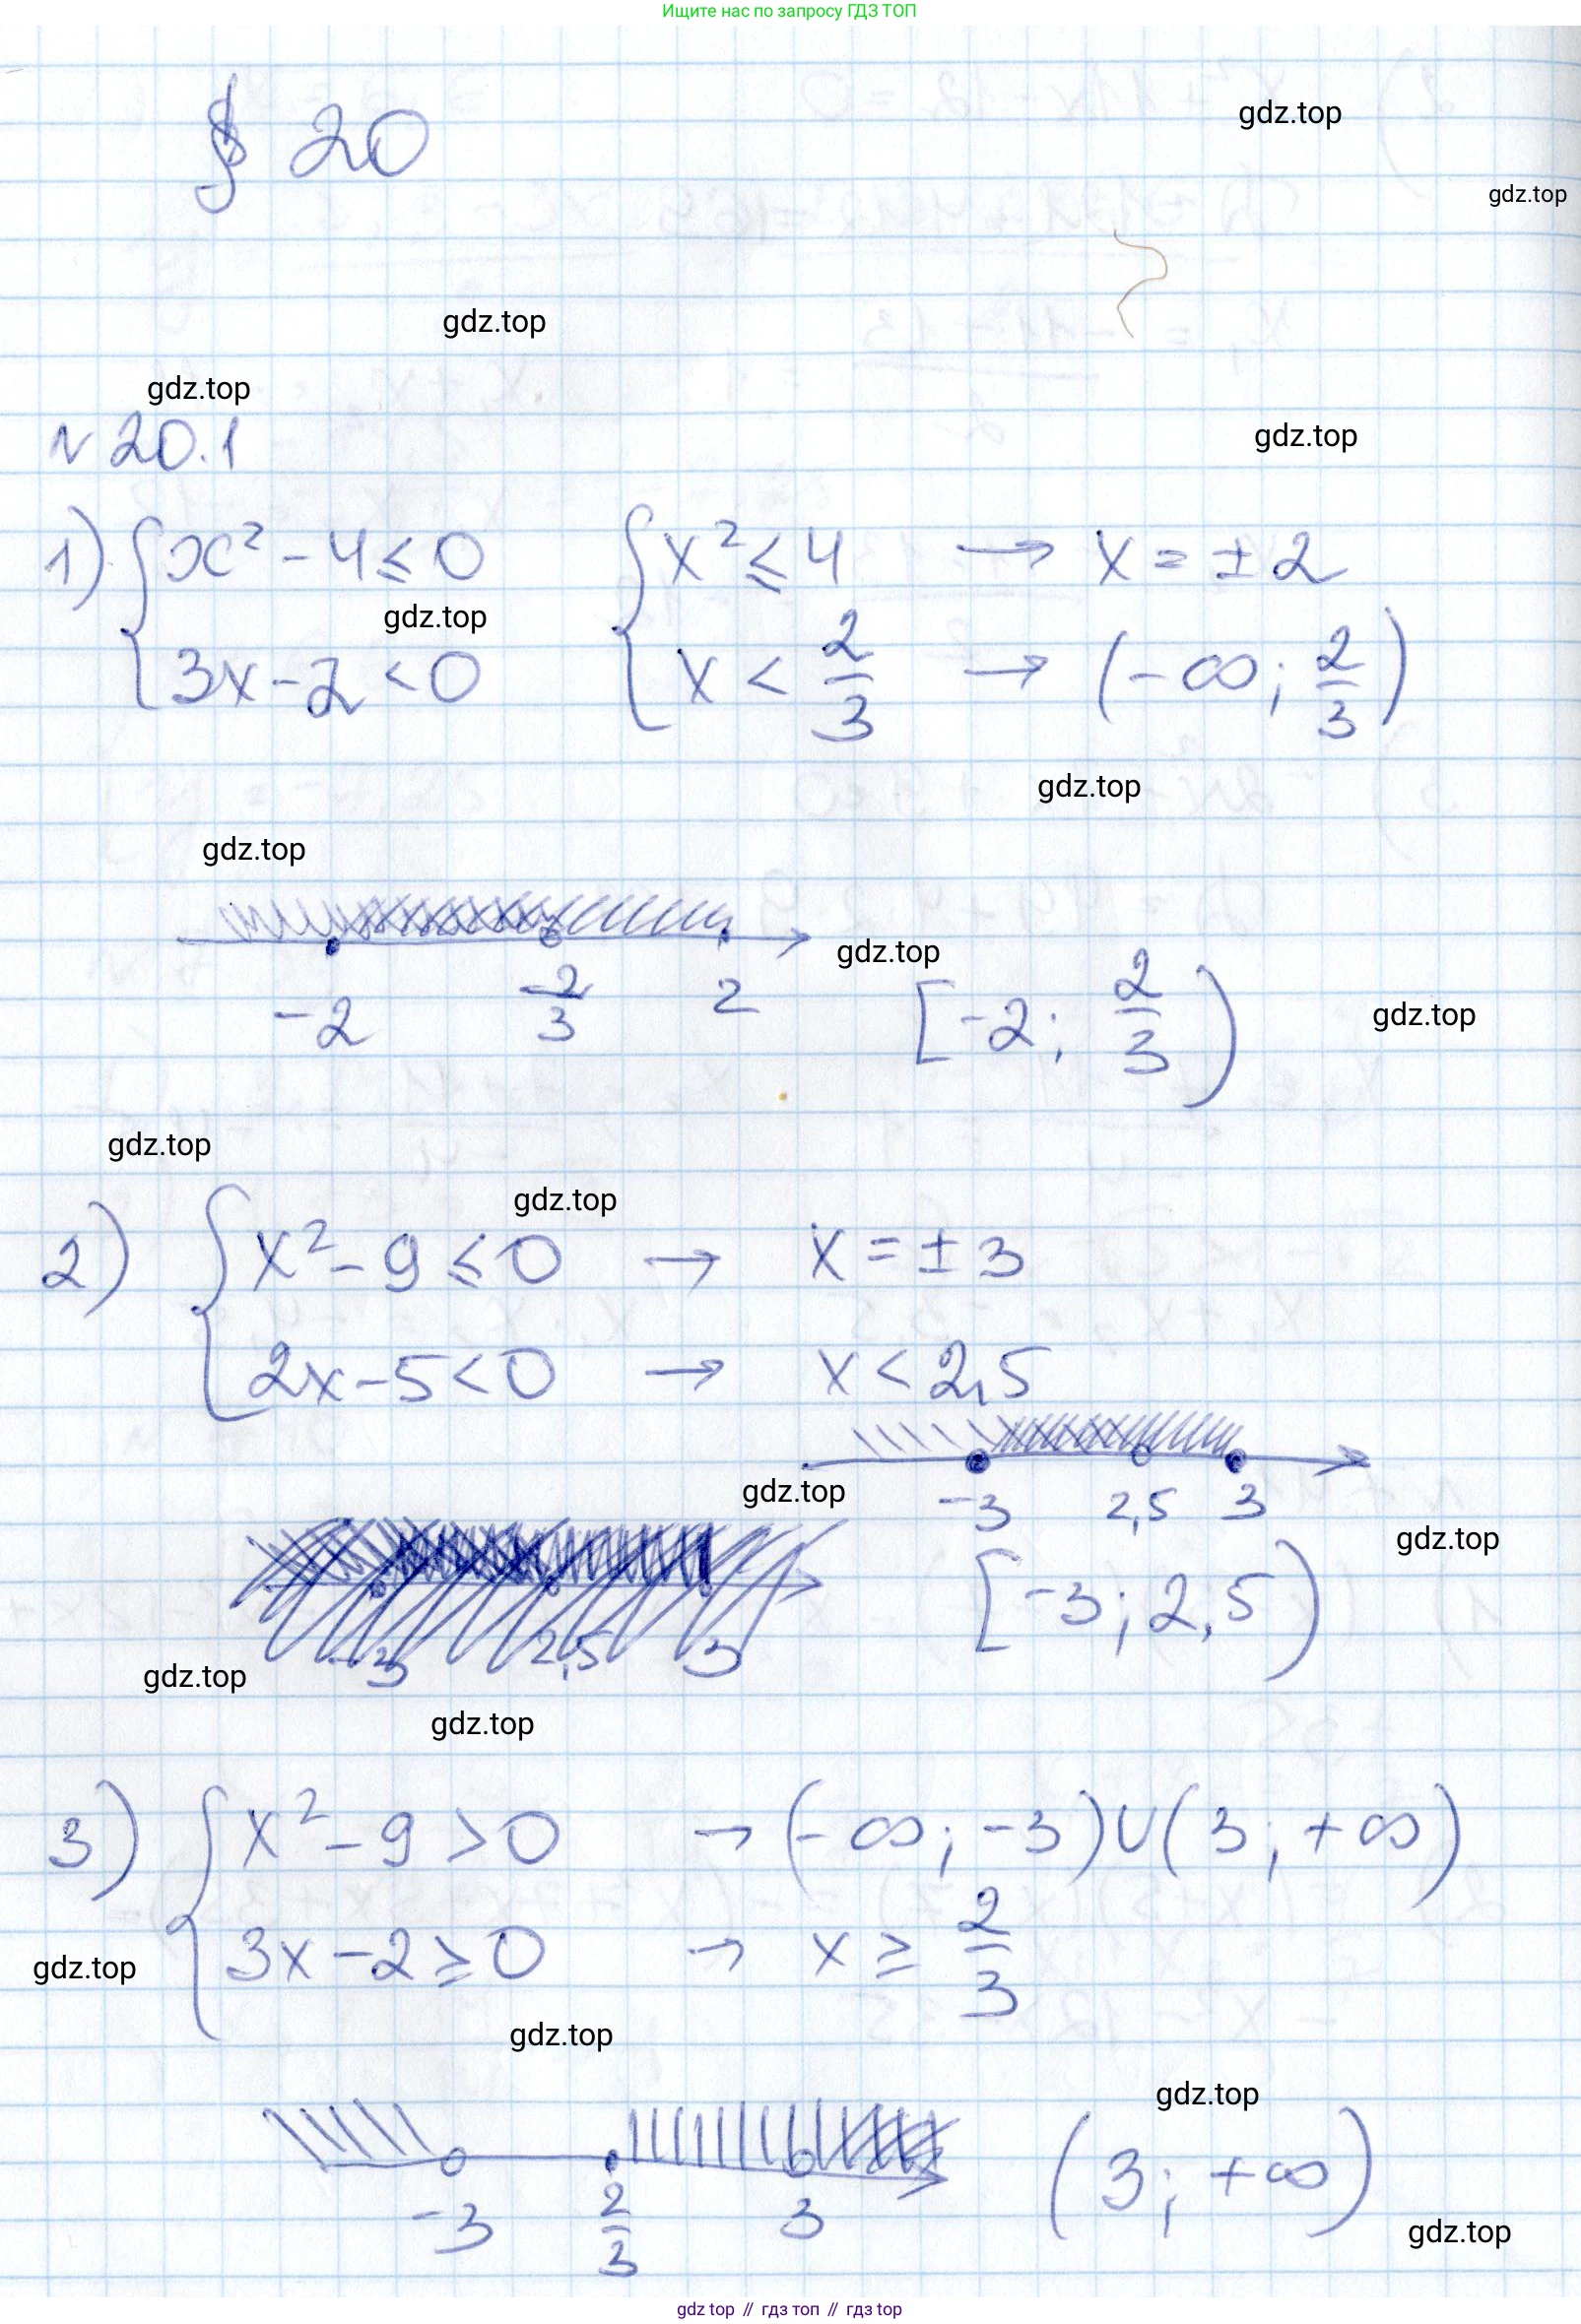 Ищите нас по запросу ГДЗ ТОП
gdz.top
§ 20
gdz.top
gdz.top
gdz.top
gdz.top
N 20.1
1) { x² - 4 ≤ 0 { x² ≤ 4 → x = ± 2
gdz.top
3x - 2 < 0 x < 2/3 → (-∞; 2/3)
gdz.top
gdz.top
gdz.top
-2 2/3 2 [-2; 2/3)
gdz.top
gdz.top
gdz.top
2) { x² - 9 ≤ 0 → x = ± 3
2x - 5 < 0 → x < 2,5
gdz.top
-3 2,5 3
gdz.top
[-3; 2,5)
-3 2,5 3
gdz.top
gdz.top
3) { x² - 9 > 0 → (-∞; -3) ∪ (3; +∞)
3x - 2 ≥ 0 → x ≥ 2/3
gdz.top
gdz.top
gdz.top
-3 2/3 3 (3; +∞)
gdz.top
gdz top // гдз топ // гдз top